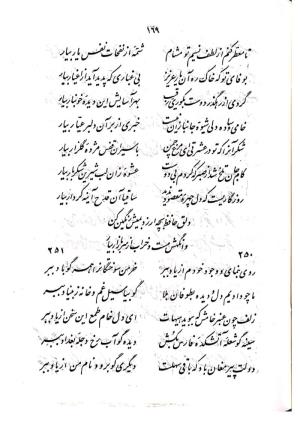 ۱۶۹
تا معطر کنم از لطف نسیم تو مشام
شمه‌ای از نفحات نفس یار بیار
بوفای تو که خاک ره آن یار عزیز
بی غباری که پدید آید از اغیار بیار
گردی از رهگذر دوست بکوری رقیب
بهر آسایش این دیدهٔ خونبار بیار
خامی و ساده دلی شیوهٔ جانبازان نیست
خبری از بر آن دلبر عیار بیار
شکر آنرا که تو در عشرتی ای مرغ چمن
باسیران قفس مژدهٔ گلزار بیار
کام جان تلخ شد از صبر که کردم بی دوست
عشوه‌ای زان لب شیرین شکربار بیار
روزگاریست که دل چهرهٔ مقصود ندید
ساقیا آن قدح آینه کردار بیار
دلق حافظ بچه ارزد بمیش رنگین کن
وانگهش مست و خراب از سر بازار بیار
۲۵۰
۲۵۱
روی بنمای و وجود خودم از یاد ببر
خرمن سوختگانرا همه گو باد ببر
ما چو دادیم دل و دیده بطوفان بلا
گو بیا سیل غم و خانه ز بنیاد ببر
زلف چون عنبر خامش که ببوید هیهات
ای دل خام طمع این سخن از یاد ببر
سینه گو شعلهٔ آتشکدهٔ فارس بکش
دیده گو آب رخ دجلهٔ بغداد ببر
دولت پیر مغان باد که باقی سهلست
دیگری گو برو و نام من از یاد ببر